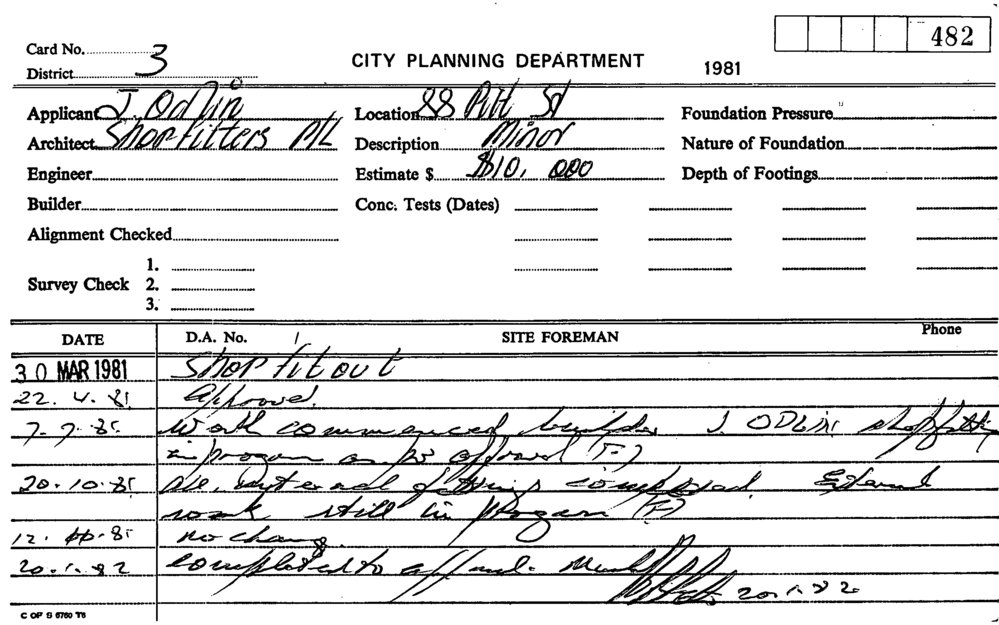 482
Card No. 3
District
CITY PLANNING DEPARTMENT 1981
Applicant J. Odlin Location 88 Pitt St Foundation Pressure
Architect Shopfitters P/L Description Minor Nature of Foundation
Engineer Estimate $ $10,000 Depth of Footings
Builder Conc. Tests (Dates)
Alignment Checked
1.
Survey Check 2.
3.
DATE D.A. No. SITE FOREMAN Phone
30 MAR 1981 Shop fit out
22. 4. 81 Approved.
7-7-81. Work commenced builder J. ODLIN shopfitting
in progress as per approval (F)
20.10.81 internal fittings completed. External
work still in progress (F)
12. 81 no change.
20.1.82 completed to approval.
20.1.82
C OF S 6760 T6